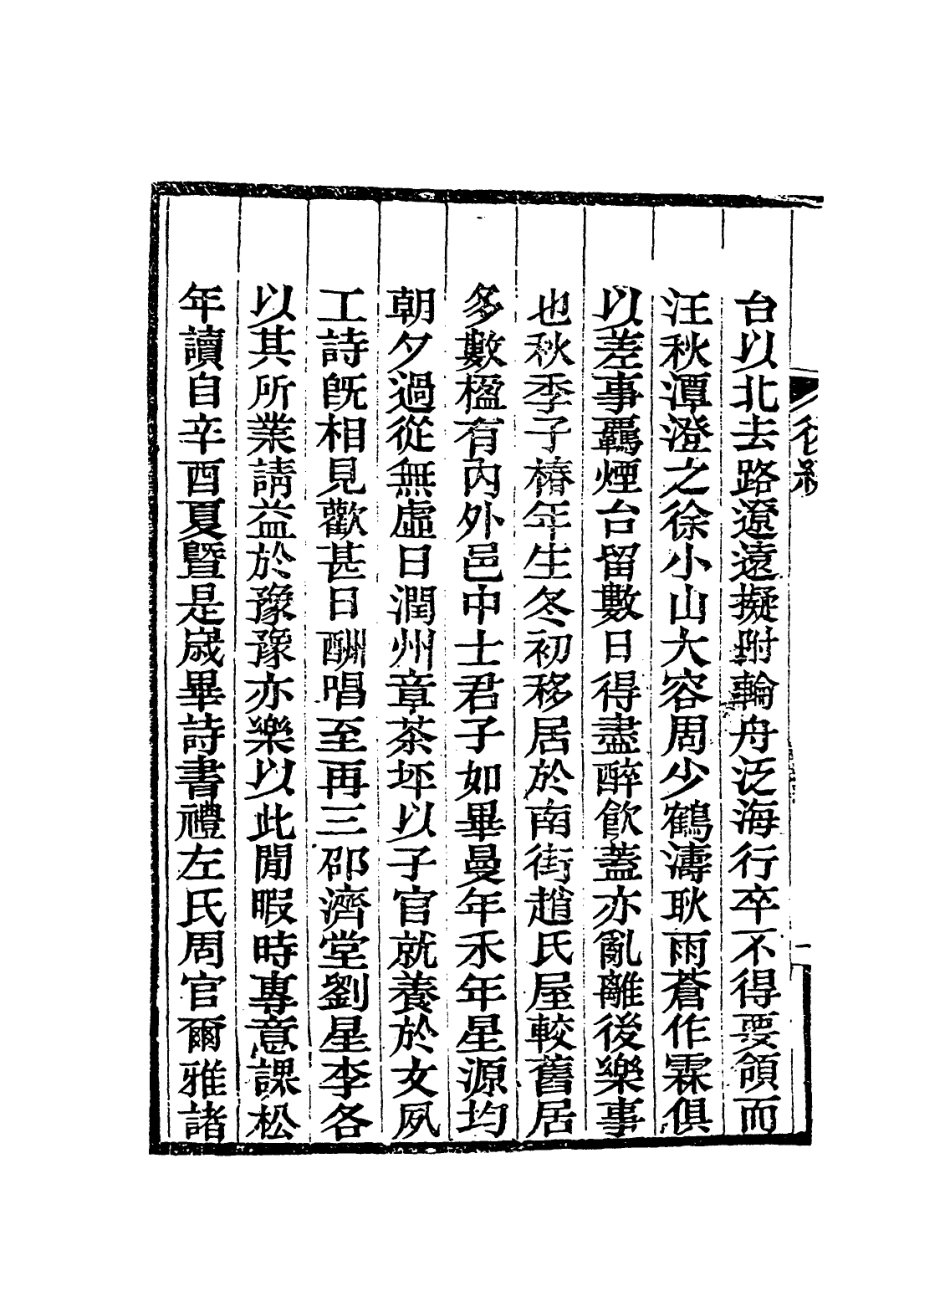 台以北去路遼遠擬附輪舟泛海行卒不得要領而
汪秋潭澄之徐小山大容周少鶴濤耿雨蒼作霖俱
以差事羈煙台留數日得盡醉飲蓋亦亂離後樂事
也秋季子椿年生冬初移居於南街趙氏屋較舊居
多數楹有內外邑中士君子如畢曼年禾年星源均
朝夕過從無虛日潤州章茶坪以子官就養於女夙
工詩旣相見歡甚日酬唱至再三邵濟堂劉星李各
以其所業請益於豫豫亦樂以此閒暇時專意課松
年讀自辛酉夏曁是歲畢詩書禮左氏周官爾雅諸